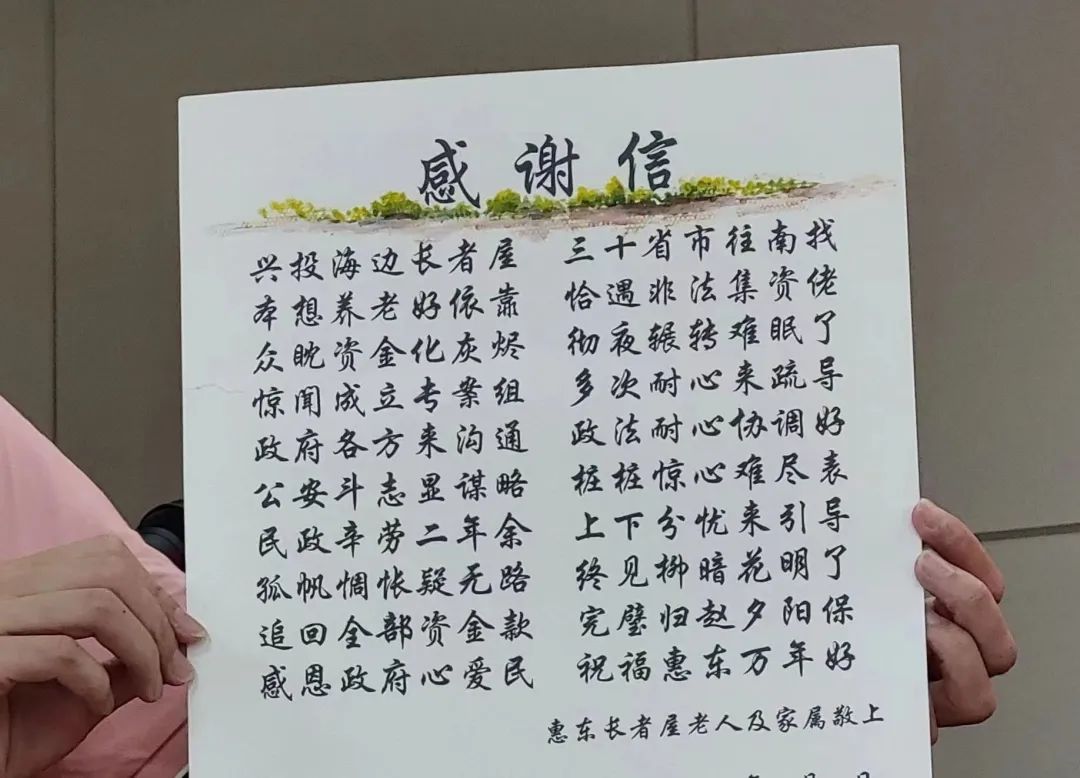 感谢信
兴投海边长者屋 三十省市往南找
本想养老好依靠 恰遇非法集资佬
众眈资金化灰烬 彻夜辗转难眠了
惊闻成立专案组 多次耐心来疏导
政府各方来沟通 政法耐心协调好
公安斗志显谋略 桩桩惊心难尽表
民政辛劳二年余 上下分忧来引导
孤帆惆怅疑无路 终见柳暗花明了
追回全部资金款 完璧归赵夕阳保
感恩政府心爱民 祝福惠东万年好
惠东长者屋老人及家属敬上